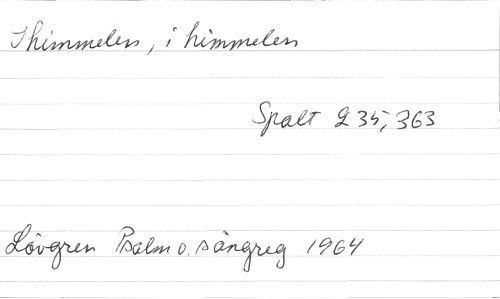 I himmelen, i himmelen
Spalt 235, 363
Lövgren Psalm o. sångreg 1964